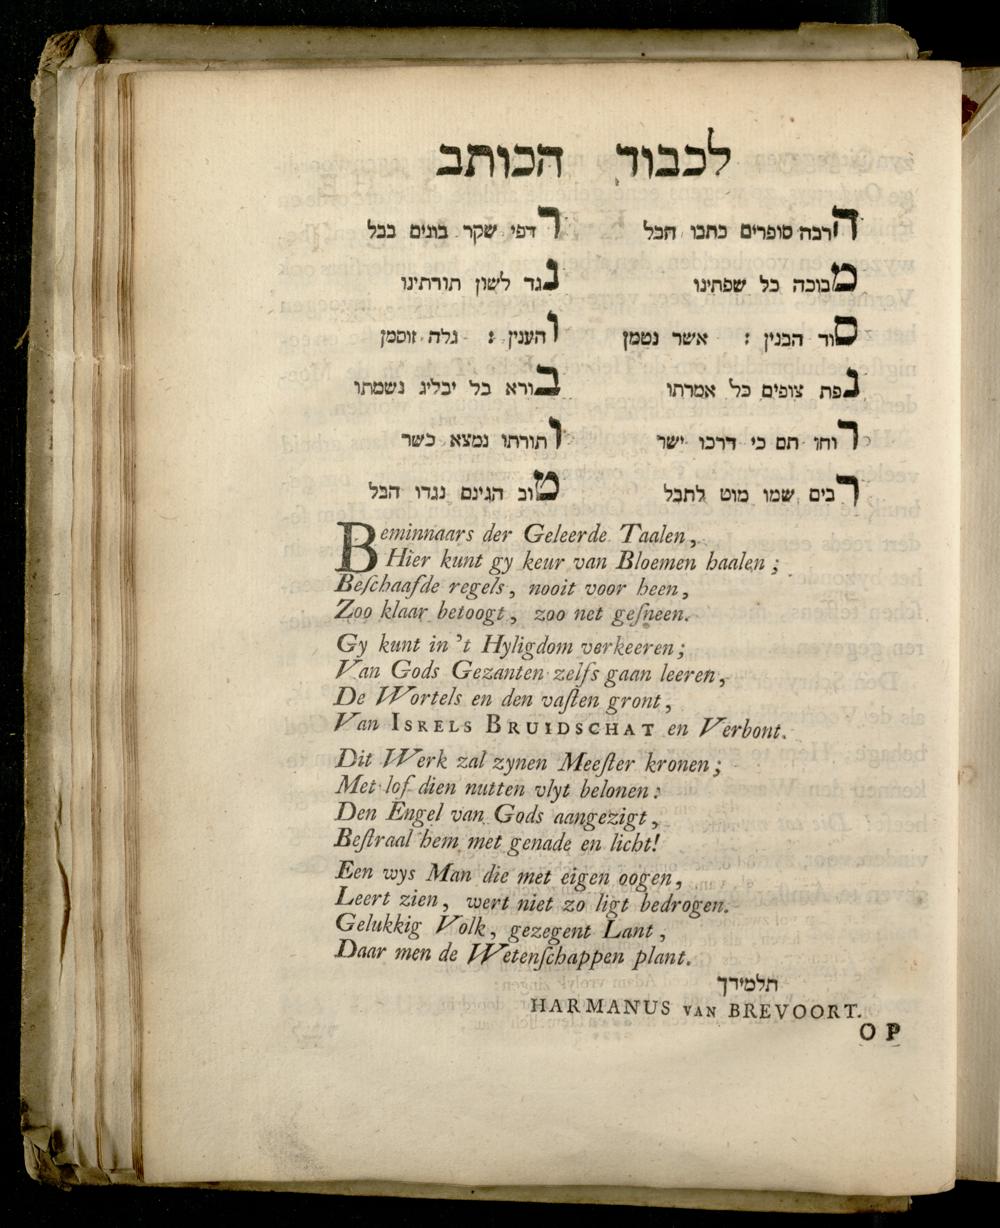 לכבוד הכותב
הרבה סופרים כתבו הבל רדפי שקר בונים בבל
מבוכה כל שפתינו נגד לשון תורתינו
סוד הבנין : אשר נטמן והענין : גלה זוסמן
נפת צופים כל אמרתו בורא כל יבליג נשמתו
רוחו תם כי דרכו ישר ותורתו נמצא כשר
רבים שמו מוט לתבל טוב הגינם נגדו הבל
Beminnaars der Geleerde Taalen,
Hier kunt gy keur van Bloemen haalen;
Beſchaafde regels, nooit voor heen,
Zoo klaar betoogt, zoo net geſneen.
Gy kunt in 't Hyligdom verkeeren;
Van Gods Gezanten zelfs gaan leeren,
De Wortels en den vaſten gront,
Van ISRELS BRUIDSCHAT en Verbont.
Dit Werk zal zynen Meeſter kronen;
Met lof dien nutten vlyt belonen:
Den Engel van Gods aangezigt,
Beſtraal hem met genade en licht!
Een wys Man die met eigen oogen,
Leert zien, wert niet zo ligt bedrogen.
Gelukkig Volk, gezegent Lant,
Daar men de Wetenſchappen plant.
תלמידך
HARMANUS VAN BREVOORT.
OP